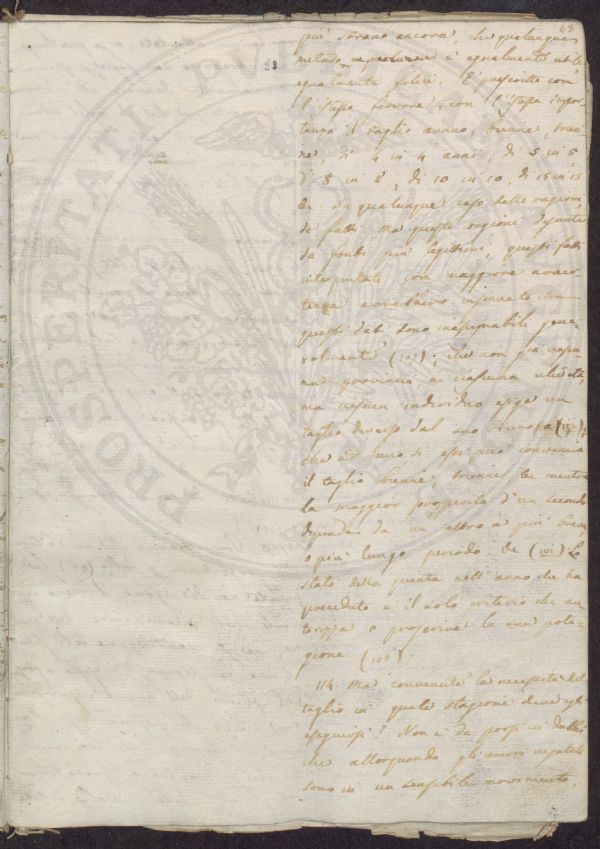 63
più strano ancora, che qualunque
metodo è egualmente utile
egualmente felice. È prescritto con
l'istesso fervore, con l'istessa impor
tanza il taglio annuo, bienne, trien
ne, di 4 in 4 anni, di 5 in 5
d' 8 in 8, di 10 in 10, di 15 in 15
&c. da qualunque caso delle ragioni
de' fatti. Ma queste ragioni desunte
da fonti più legittimi, questi fatti
interpretati con maggiore avver
tenza avrebbero insegnato che
questi dati sono inassegnabili gene
ralmente (105); che non già ciascu
na provincia, o ciascuna
ma ciascun individuo esige un
taglio diverso dal suo vicino
che ad uno di essi può convenire
il taglio bienne, trienne, &c. mentre
la maggior prosperità d'un secondo
dipende da un altro a più breve
o più lungo periodo. &c. (101) Lo
stato della pianta nell'anno che ha
preceduto è il solo criterio che au
torizza o proscrive la sua pota-
gione (106).
114. Ma convenuta la necessità del
taglio in quale stagione deve egli
eseguirsi? Non è da porsi in dubbio
che allorquando gli umori vegetali
sono in un sensibile movimento,
PROSPERITATI PUBLICAE